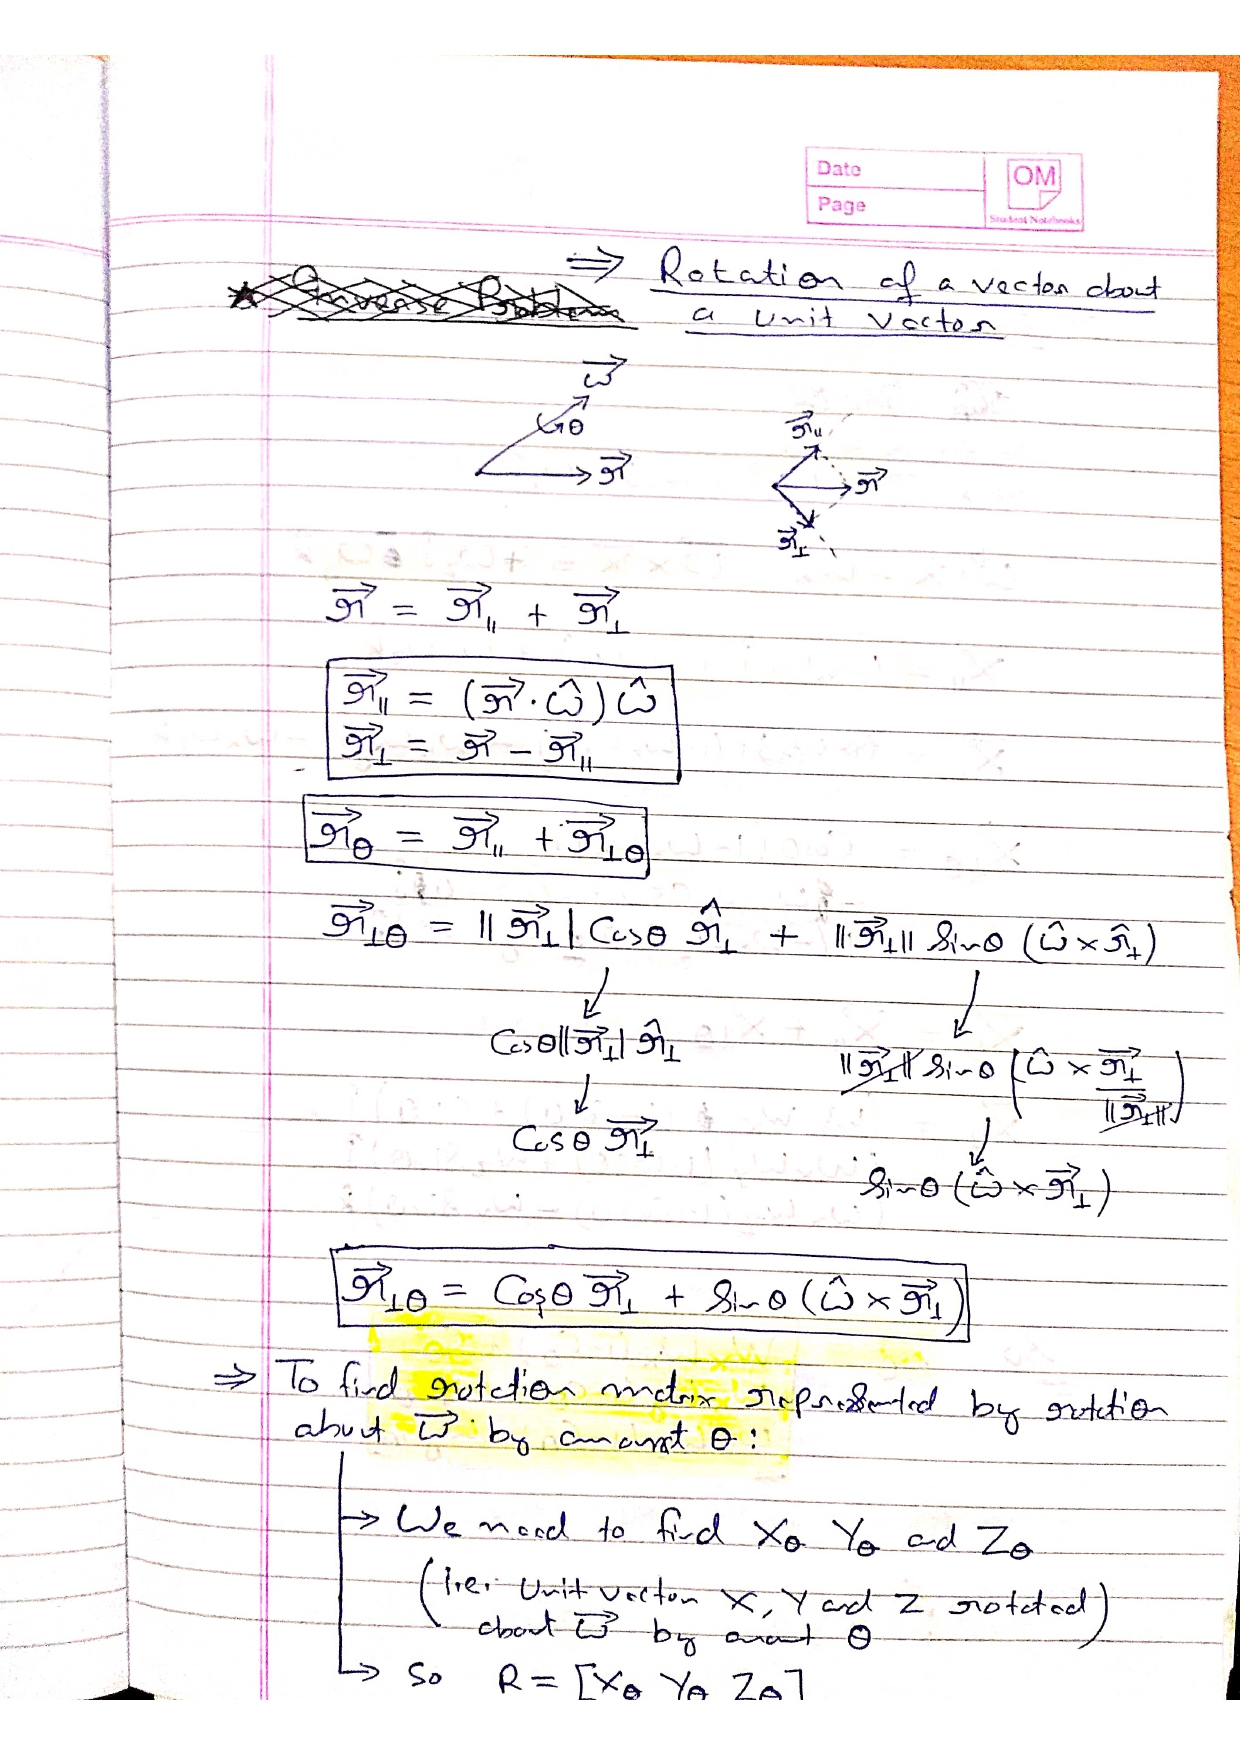 Date
Page
OM
Student Notebooks
⇒ Rotation of a vector about
a unit vector
★ Inverse Problem
ω⃗
θ
r⃗
r⃗∥
r⃗
r⃗⊥
r⃗ = r⃗∥ + r⃗⊥
r⃗∥ = (r⃗ · ω̂) ω̂
r⃗⊥ = r⃗ − r⃗∥
r⃗θ = r⃗∥ + r⃗⊥θ
r⃗⊥θ = ||r⃗⊥| Cosθ r̂⊥ + ||r⃗⊥|| Sinθ (ω̂ × r̂⊥)
Cosθ||r⃗⊥| r̂⊥
||r⃗⊥|| Sinθ (ω̂ × r⃗⊥ / ||r⃗⊥||)
Cosθ r⃗⊥
Sinθ (ω̂ × r⃗⊥)
r⃗⊥θ = Cosθ r⃗⊥ + Sinθ (ω̂ × r⃗⊥)
⇒ To find rotation matrix represented by rotation
about ω⃗ by amount θ :
→ We need to find Xθ Yθ and Zθ
(i.e. Unit vector X, Y and Z rotated)
about ω⃗ by amount θ
→ So R = [Xθ Yθ Zθ]